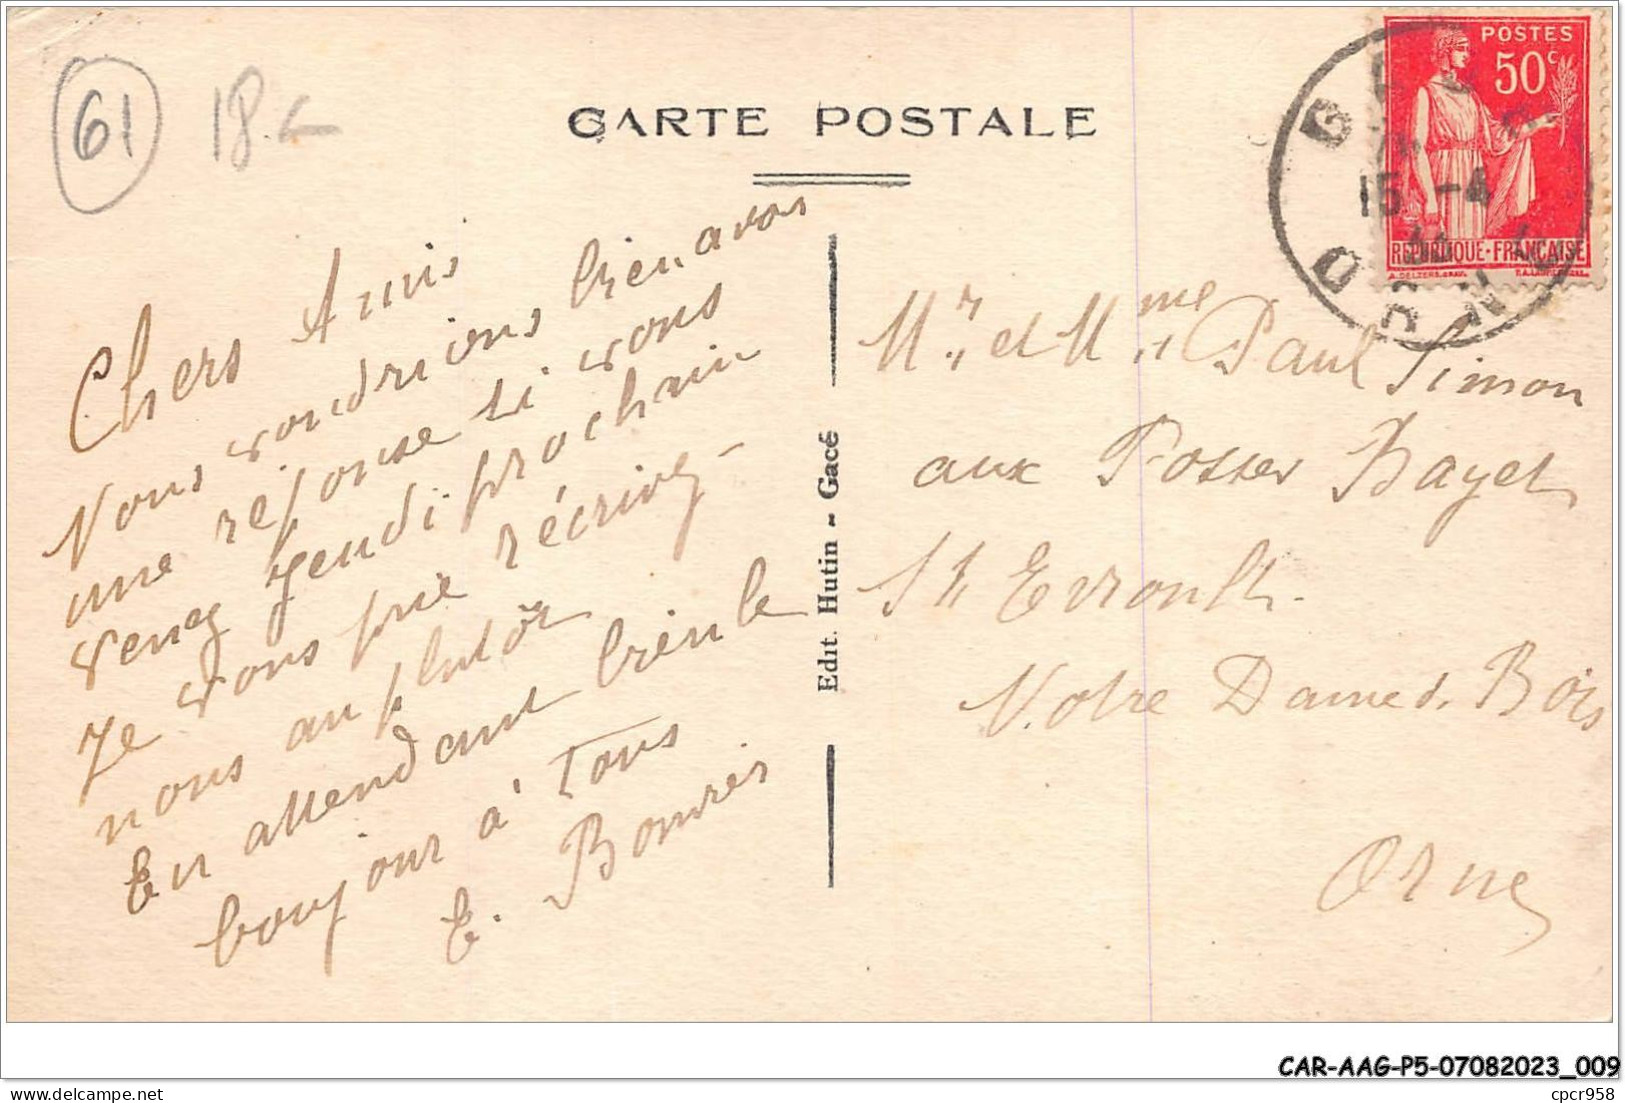 61
18
CARTE POSTALE
POSTES
50c
REPUBLIQUE-FRANÇAISE
15 -4
ORNE
Chers Amis
Nous voudrions bien avoir
une réponse si vous
venez Jeudi prochain
Je vous prie récrivez-
nous au plutôt
En attendant bien le
bonjour à Tous
E.
Edit. Hutin - Gacé
Mr et Mme Paul Simon
aux Fosses Bayet
St Evroult.
Notre Dame d. Bois
Orne
CAR-AAG-P5-07082023_009
cpcr958